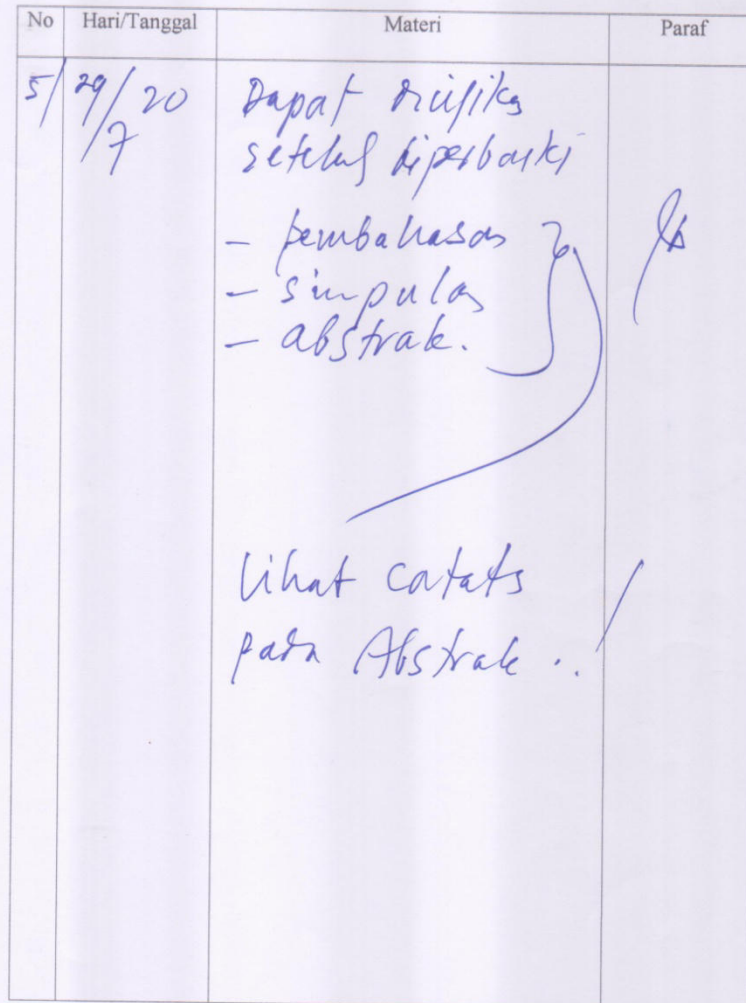 No Hari/Tanggal Materi Paraf
5/ 29/7 20 Dapat diujika
setelah diperbaiki
- pembahasan
- simpulan
- abstrak.
lihat catatan
pada Abstrak ..!